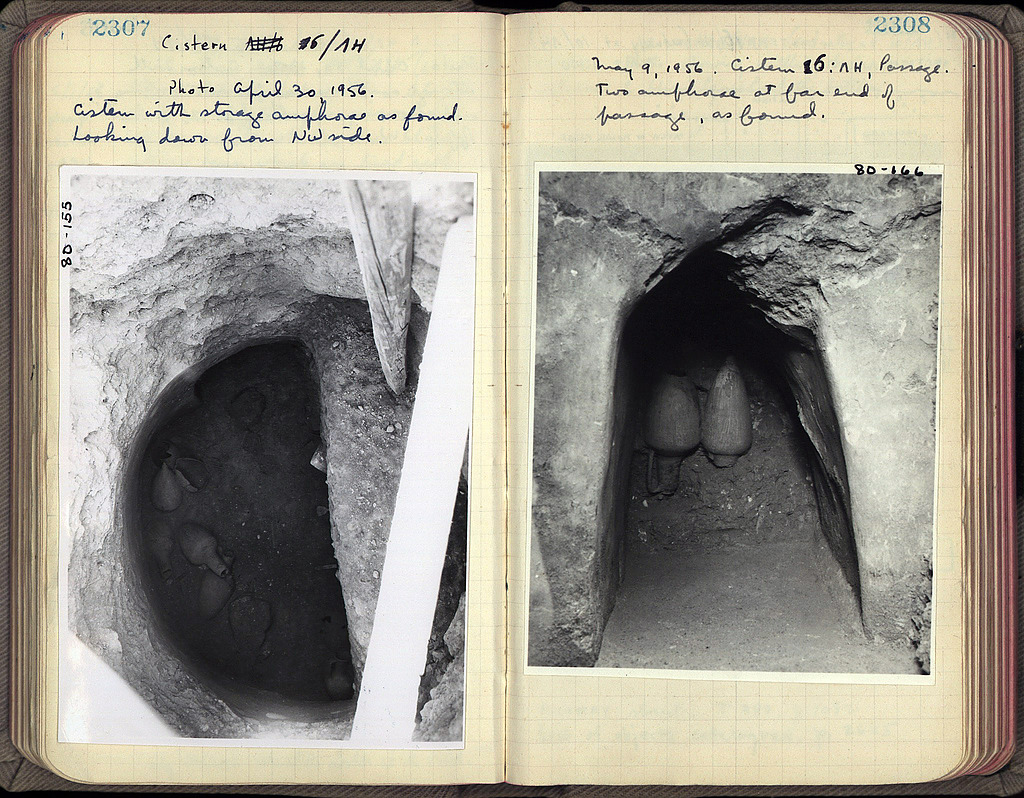 2307
Cistern 16/ΛH
Photo April 30, 1956.
Cistern with storage amphorae as found.
Looking down from NW side.
80-155
2308
May 9, 1956. Cistern 16:ΛH, Passage.
Two amphorae at far end of
passage, as found.
80-166